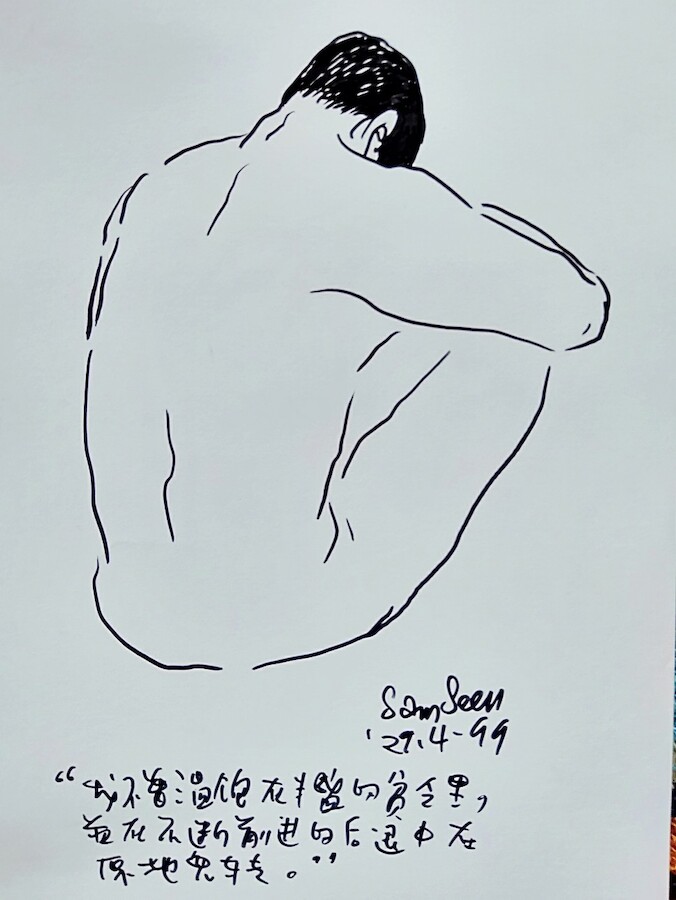 Sam Seen
'29.4-99
“我不曾温饱在丰盛的贫里，
在不断前进的后退中在
原地兜转。”